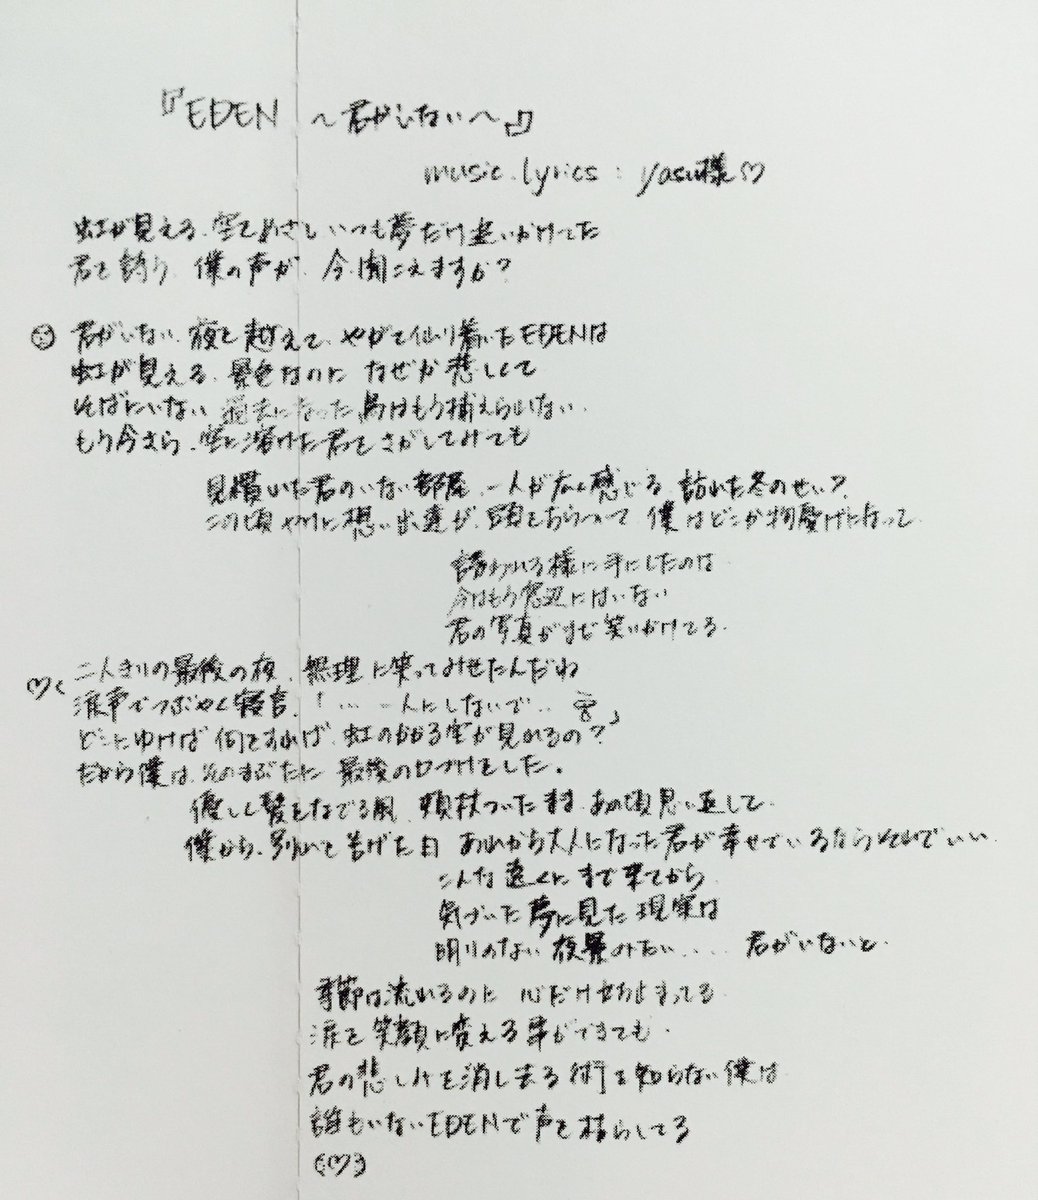 『EDEN ～君がいない～』
music.lyrics: yasu様♡
虹が見える、空をめざしいつも夢だけ追いかけてた
君を誇り、僕の声が、今、聞こえますか?
君がいない、夜を越えて、やがて辿り着いたEDENは
虹が見える、景色なのに なぜか悲しくて
そばにいない 過去になった鳥はもう捕えられない
もう今さら、空に溶けた君をさがしてみても
見慣れた君のいない部屋、一人が広く感じる 訪れた冬のせい?
この頃やけに想い出達が、頭をちらついて 僕はどこか物憂げになって
誘われる様に手にしたのは
今はもう窓辺にはいない
君の写真がまだ笑いかけてる
二人きりの最後の夜、無理に笑ってみせたんだね
涙声でつぶやく寝言、「…一人にしないで‥」
どこにゆけば 何をすれば、虹のかかる空が見れるの?
だから僕は、そのまぶたに 最後の口づけをした。
優しく髪をなでる風、頬杖ついたまま、あの頃思い返して
僕から、別れを告げた日 あれから大人になった君が幸せでいるならそれでいい
こんな遠くにまで来てから
気づいた夢に見た現実は
明りのない夜景みたい‥‥君がいないと
季節は流れるのに 心だけ立ち止まってる
涙を笑顔に変える事ができても
君の悲しみを消し去る術を知らない僕は
誰もいないEDENで声を枯らしてる